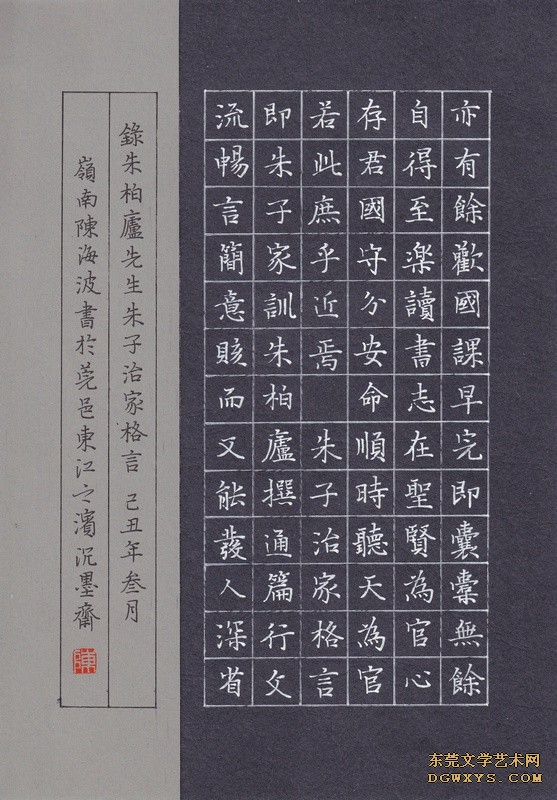 亦有餘歡國課早完即囊橐無餘
自得至樂讀書志在聖賢為官心
存君國守分安命順時聽天為官
若此庶乎近焉 朱子治家格言
即朱子家訓朱柏廬撰通篇行文
流暢言簡意賅而又能發人深省
錄朱柏廬先生朱子治家格言 己丑年叁月
嶺南陳海波書於莞邑東江之濱沉墨齋
陳
东莞文学艺术网
DGWXYS.COM